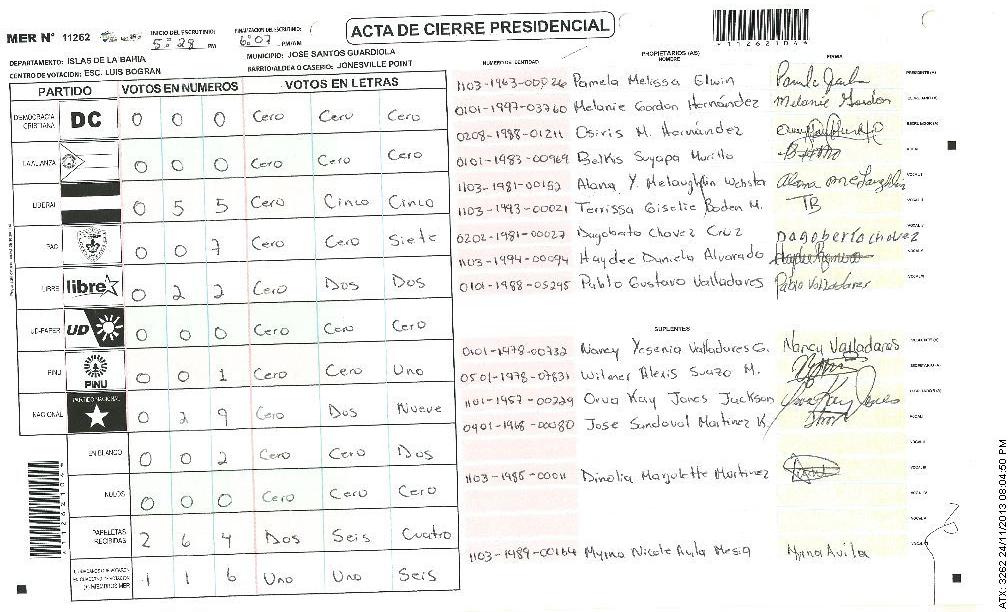 ACTA DE CIERRE PRESIDENCIAL
MER N° 11262
INICIO DEL ESCRUTINIO: 5:28 PM
FINALIZACION DEL ESCRUTINIO: 6:07 PM/AM
112621044
DEPARTAMENTO: ISLAS DE LA BAHIA
MUNICIPIO: JOSE SANTOS GUARDIOLA
CENTRO DE VOTACION: ESC. LUIS BOGRAN
BARRIO/ALDEA O CASERIO: JONESVILLE POINT
PARTIDO VOTOS EN NUMEROS VOTOS EN LETRAS
DEMOCRACIA CRISTIANA DC 0 0 0 Cero Cero Cero
LA ALIANZA 0 0 0 Cero Cero Cero
LIBERAL 0 5 5 Cero Cinco Cinco
PAC 0 0 7 Cero Cero Siete
LIBRE libre 0 2 2 Cero Dos Dos
UD-FAPER UD 0 0 0 Cero Cero Cero
PINU PINU 0 0 1 Cero Cero Uno
NACIONAL PARTIDO NACIONAL 0 2 9 Cero Dos Nueve
EN BLANCO 0 0 2 Cero Cero Dos
NULOS 0 0 0 Cero Cero Cero
PAPELETAS RECIBIDAS 2 6 4 Dos Seis Cuatro
1 1 6 Uno Uno Seis
NUMERO DE IDENTIDAD PROPIETARIOS (AS) NOMBRE FIRMA
1103-1963-00026 Pamela Melissa Elwin PRESIDENTE(A)
0101-1997-03760 Melanie Gordon Hernández Melanie Gordon SECRETARIO(A)
0208-1988-01211 Osiris M. Hernández ESCRUTADOR(A)
0101-1983-00969 Belkis Suyapa Murillo VOCAL I
1103-1981-00152 Alana Y. Mclaughlin Webster Alana McLaughlin VOCAL II
1103-1993-00021 Terrissa Giselle Boden M. TB
0202-1981-00027 Dagoberto Chavez Cruz Dagoberto chavez
1103-1994-00094 Haydee Daniela Alvarado
0101-1988-05245 Pablo Gustavo Valladares Pablo Valladares
SUPLENTES
0101-1978-00732 Nancy Yesenia Valladares G. Nancy Valladares
0501-1978-07831 Wilmer Alexis Suazo M. SECRETARIO(A)
1101-1957-00229 Orva Kay Jones Jackson Orva Kay Jones
0901-1968-00080 Jose Sandoval Martinez K. VOCAL I
VOCAL II
1103-1985-00011 Dinolia Margulette Martinez VOCAL III
VOCAL IV
VOCAL V
1103-1989-00164 Myrna Nicole Avila Mesia Myrna Avila
ATX: 3262 24/11/2013 08:04:50 PM